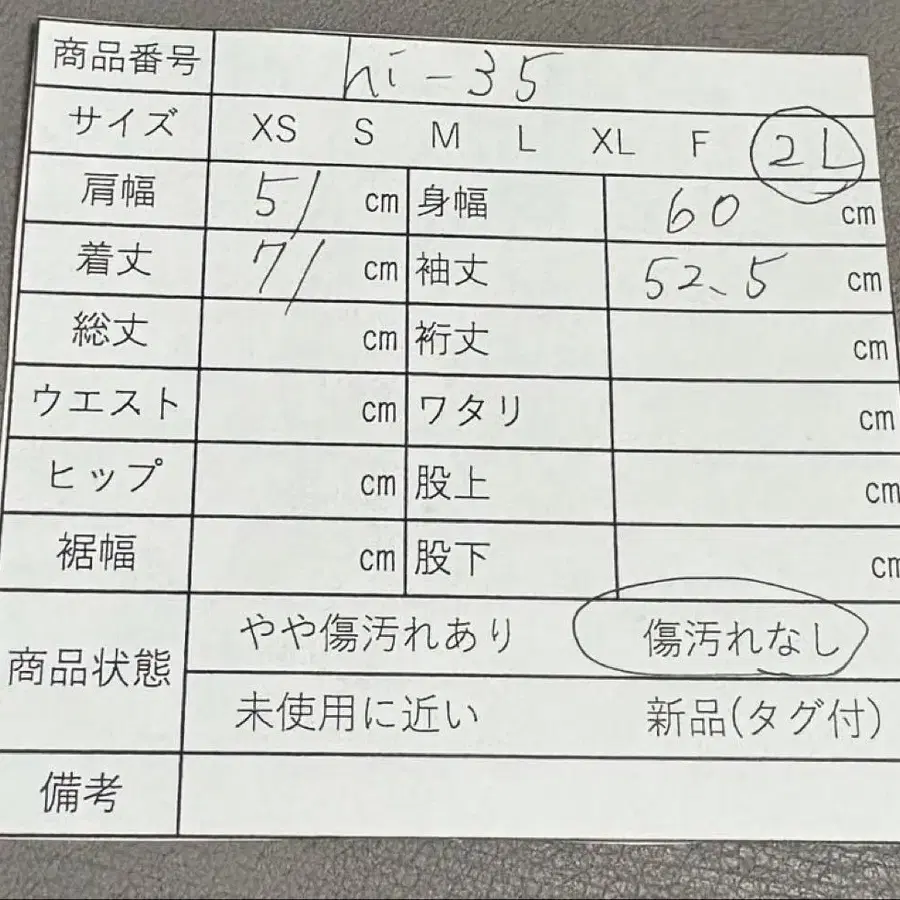 商品番号 hi-35
サイズ XS S M L XL F 2L
肩幅 51 cm 身幅 60 cm
着丈 71 cm 袖丈 52.5 cm
総丈 cm 裄丈 cm
ウエスト cm ワタリ cm
ヒップ cm 股上 cm
裾幅 cm 股下 cm
商品状態 やや傷汚れあり 傷汚れなし
未使用に近い 新品(タグ付)
備考